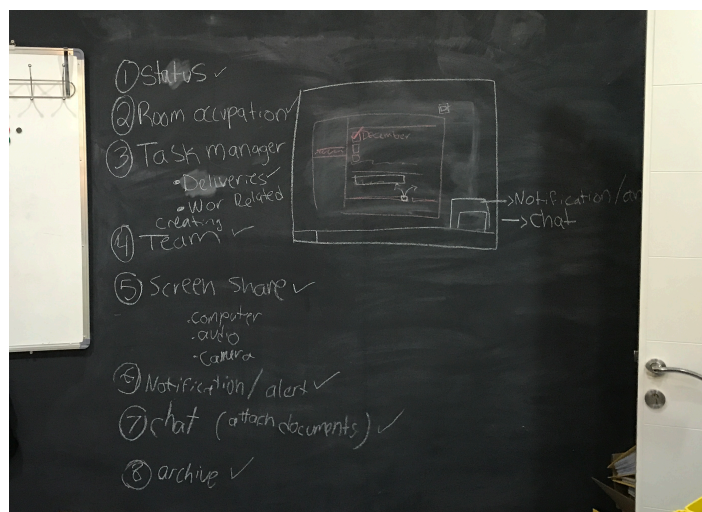 ① Status ✓
② Room occupation ✓
③ Task manager
• Deliveries ✓
• Wor Related
creating
④ Team ✓
⑤ Screen Share ✓
• computer
• audio
• Camera
⑥ Notification / alert ✓
⑦ chat (attach documents) ✓
⑧ archive ✓
December
→ Notification/
→ chat